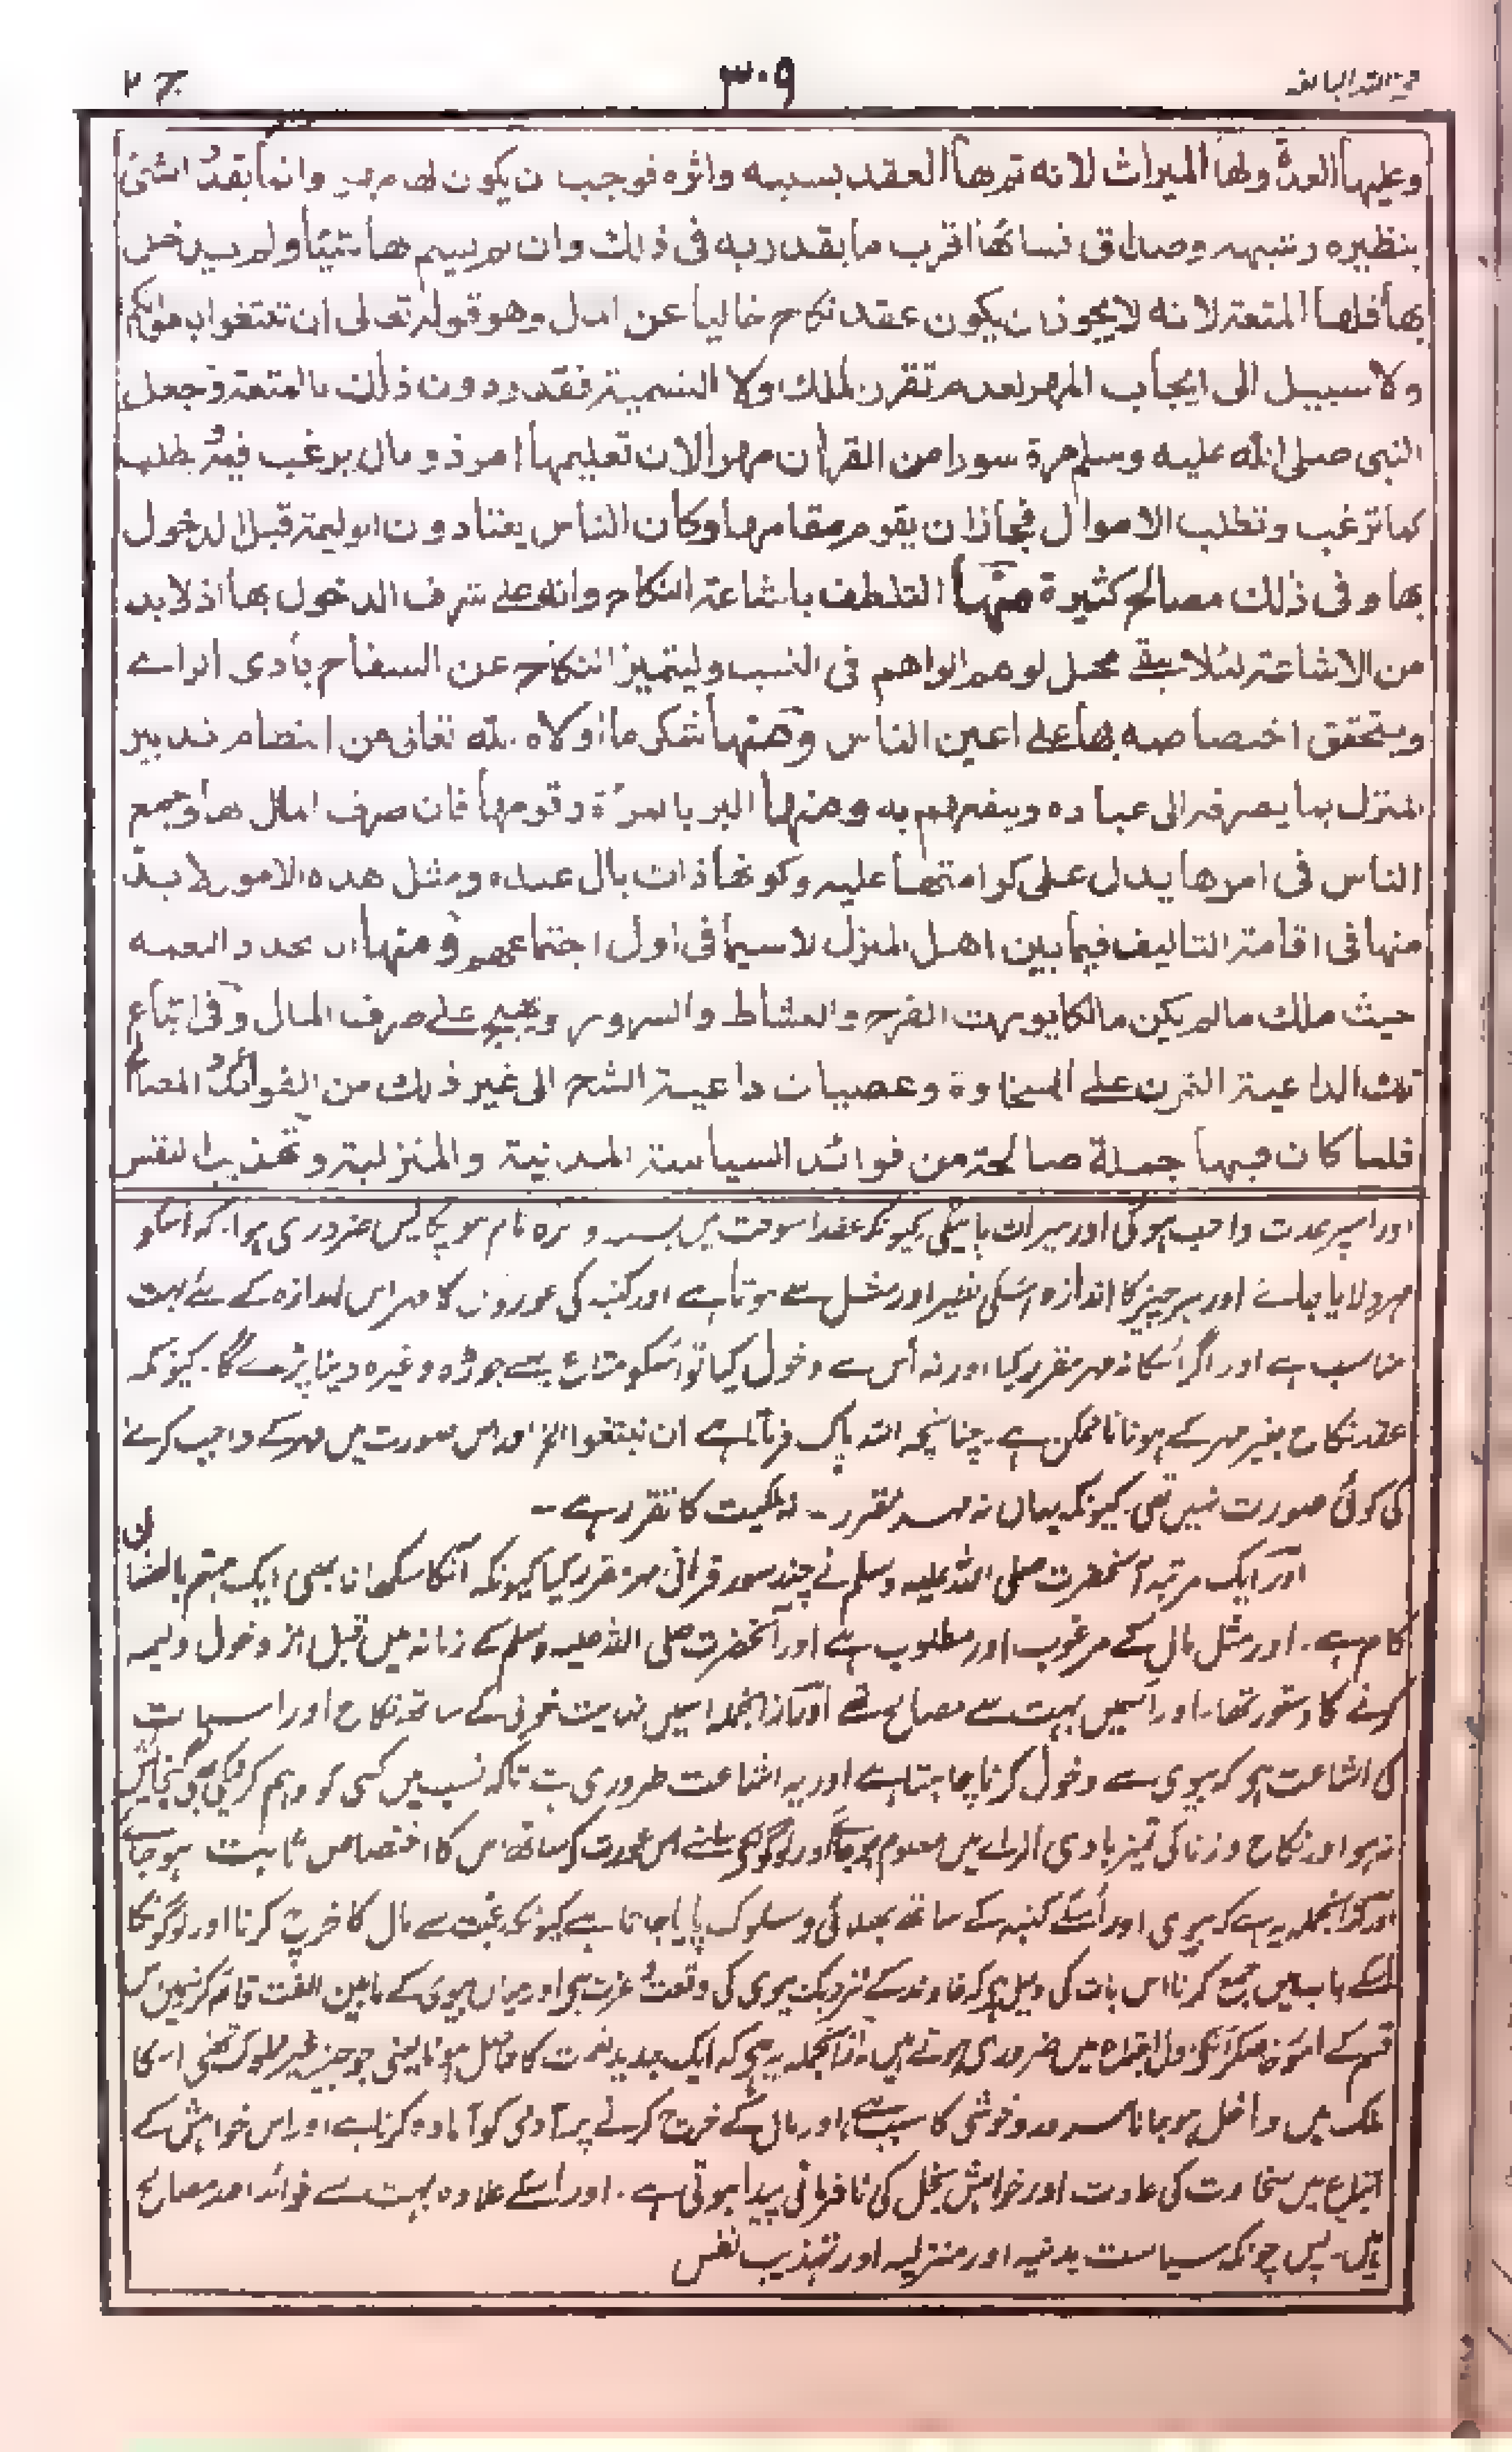 حجۃ اللہ البالغہ ۳۰۹ ج ۲
وعليها العدة ولها الميراث لانه تم لها العقد بسببه واثره فوجب ان يكون لها مهر وانما يقدر الشئ
بنظيره وشبهه وصداق نسائها اقرب ما يقدر به فى ذلك وان لم يسم لها شيئا ولم يدخل
بها فلها المتعة لانه لا يجوز ان يكون عقد نكاح خاليا عن المال وهو قوله تعالى ان تبتغوا باموالكم
ولا سبيل الى ايجاب المهر لعدم تقرر الملك ولا التسمية فقدر دون ذلك بالمتعة وجعل
النبى صلى الله عليه وسلم مرة سورا من القرأن مهرا لان تعليمها امر ذو بال يرغب فيه ويطلب
كما ترغب وتطلب الاموال فجاز ان يقوم مقامها وكان الناس يعتادون الوليمة قبل الدخول
بها وفى ذلك مصالح كثيرة منها التلطف باشاعة النكاح وانه على شرف الدخول بها اذ لا بد
من الاشاعة لئلا يبقى محل لوهم الواهم فى النسب وليتميز النكاح عن السفاح بادى الراے
ويتحقق اختصاصه بها على اعين الناس ومنها شكر ما اولاه الله تعالى من انتظام تدبير
المنزل بما يصرفه الى عباده وينفعهم به ومنها البر بالمرأة وقومها فان صرف المال لها وجمع
الناس فى امرها يدل على كرامتها عليه وكونها ذات بال عنده ومثل هذه الامور لا بد
منها فى اقامة التاليف فيما بين اهل المنزل لا سيما فى اول اجتماعهم ومنها ان تجدد النعمة
حيث ملك ما لم يكن مالكا يورث الفرح والنشاط والسرور ويهيج على صرف المال وفى اتباع
تلك الداعية التمرن على السخاوة وعصيان داعية الشح الى غير ذلك من الفوائد والمصالح
فلما كان فيها جملة صالحة من فوائد السياسة المدنية والمنزلية وتهذيب النفس
اور اسپر عدت واجب ہوگی اور میراث پائیگی کیونکہ عقد اسوقت میں تام ہو چکا پس ضروری ہوا۔ کہ اسکو
مہر دلایا جاے اور ہر چیز کا اندازہ اسکی نظیر اور مثل سے ہوتا ہے اور کنبہ کی عورتوں کا مہر اس اندازہ کے لئے بہت
مناسب ہے اور اگر اسکا نہ مہر مقرر کیا اور نہ اُس سے دخول کیا تو اسکو متاع یعنے جوڑہ وغیرہ دینا پڑے گا۔ کیونکہ
عقد نکاح بغیر مہر کے ہونا ناممکن ہے۔ چنانچہ اللہ پاک فرماتا ہے ان تبتغوا الخ اور اس صورت میں مہر کے واجب کرنے
کی کوئی صورت نہیں تھی۔ کیونکہ یہاں نہ مہر مقرر ہے نہ ملکیت کا تقرر ہے۔
اور ایک مرتبہ آنحضرت صلی اللہ علیہ وسلم نے چند سور قرانی مہر مقرر کیا کیونکہ انکا سکھانا بھی ایک مہتم بالشان
کام ہے۔ اور مثل مال کے مرغوب اور مطلوب ہے اور آنحضرت صلی اللہ علیہ وسلم کے زمانہ میں قبل از دخول ولیمہ
کرنے کا دستور تھا۔ اور اسمیں بہت سے مصالح تھے اور ازانجملہ اسمیں نہایت خوبی کے ساتھ نکاح اور اس بات
کی اشاعت ہو کہ بیوی سے دخول کرنا چاہتا ہے اور یہ اشاعت ضروری ہے تاکہ نسب میں کسی کو وہم کرنیکی گنجائش
نہ ہو اور نکاح و زنا کی تمیز بادی الراے میں معلوم ہو جاے اور لوگوں کے سامنے اس عورت کے ساتھ اس کا اختصاص ثابت ہو جاے
اور ازانجملہ یہ ہے کہ بیوی اور اُسکے کنبہ کے ساتھ بھلائی و سلوک پایا جاتا ہے کیونکہ رغبت سے مال کا خرچ کرنا اور لوگونکا
اسکے باب میں جمع کرنا اس بات کی دلیل ہو کہ خاوند کے نزدیک بیوی کی وقعت و عزت ہو اور میاں بیوی کے مابین الفت قائم کرنے میں اس
قسم کے امور خصوصاً انکے اول اجتماع میں ضروری ہوتے ہیں۔ ازانجملہ یہ ہو کہ ایک جدید نعمت کا حاصل ہونا یعنی جو چیز غیر مملوک تھی اس کا
ملک میں داخل ہو جانا سرور و خوشی کا سبب ہے، اور مال کے خرچ کرنے پر آدمی کو آمادہ کرتا ہے اور اس خواہش کے
اتباع میں سخاوت کی عادت اور خواہش بخل کی نافرمانی پیدا ہوتی ہے۔ اور اسکے علاوہ بہت سے فوائد اور مصالح
ہیں۔ پس چونکہ سیاست مدنیہ اور منزلیہ اور تہذیب نفس